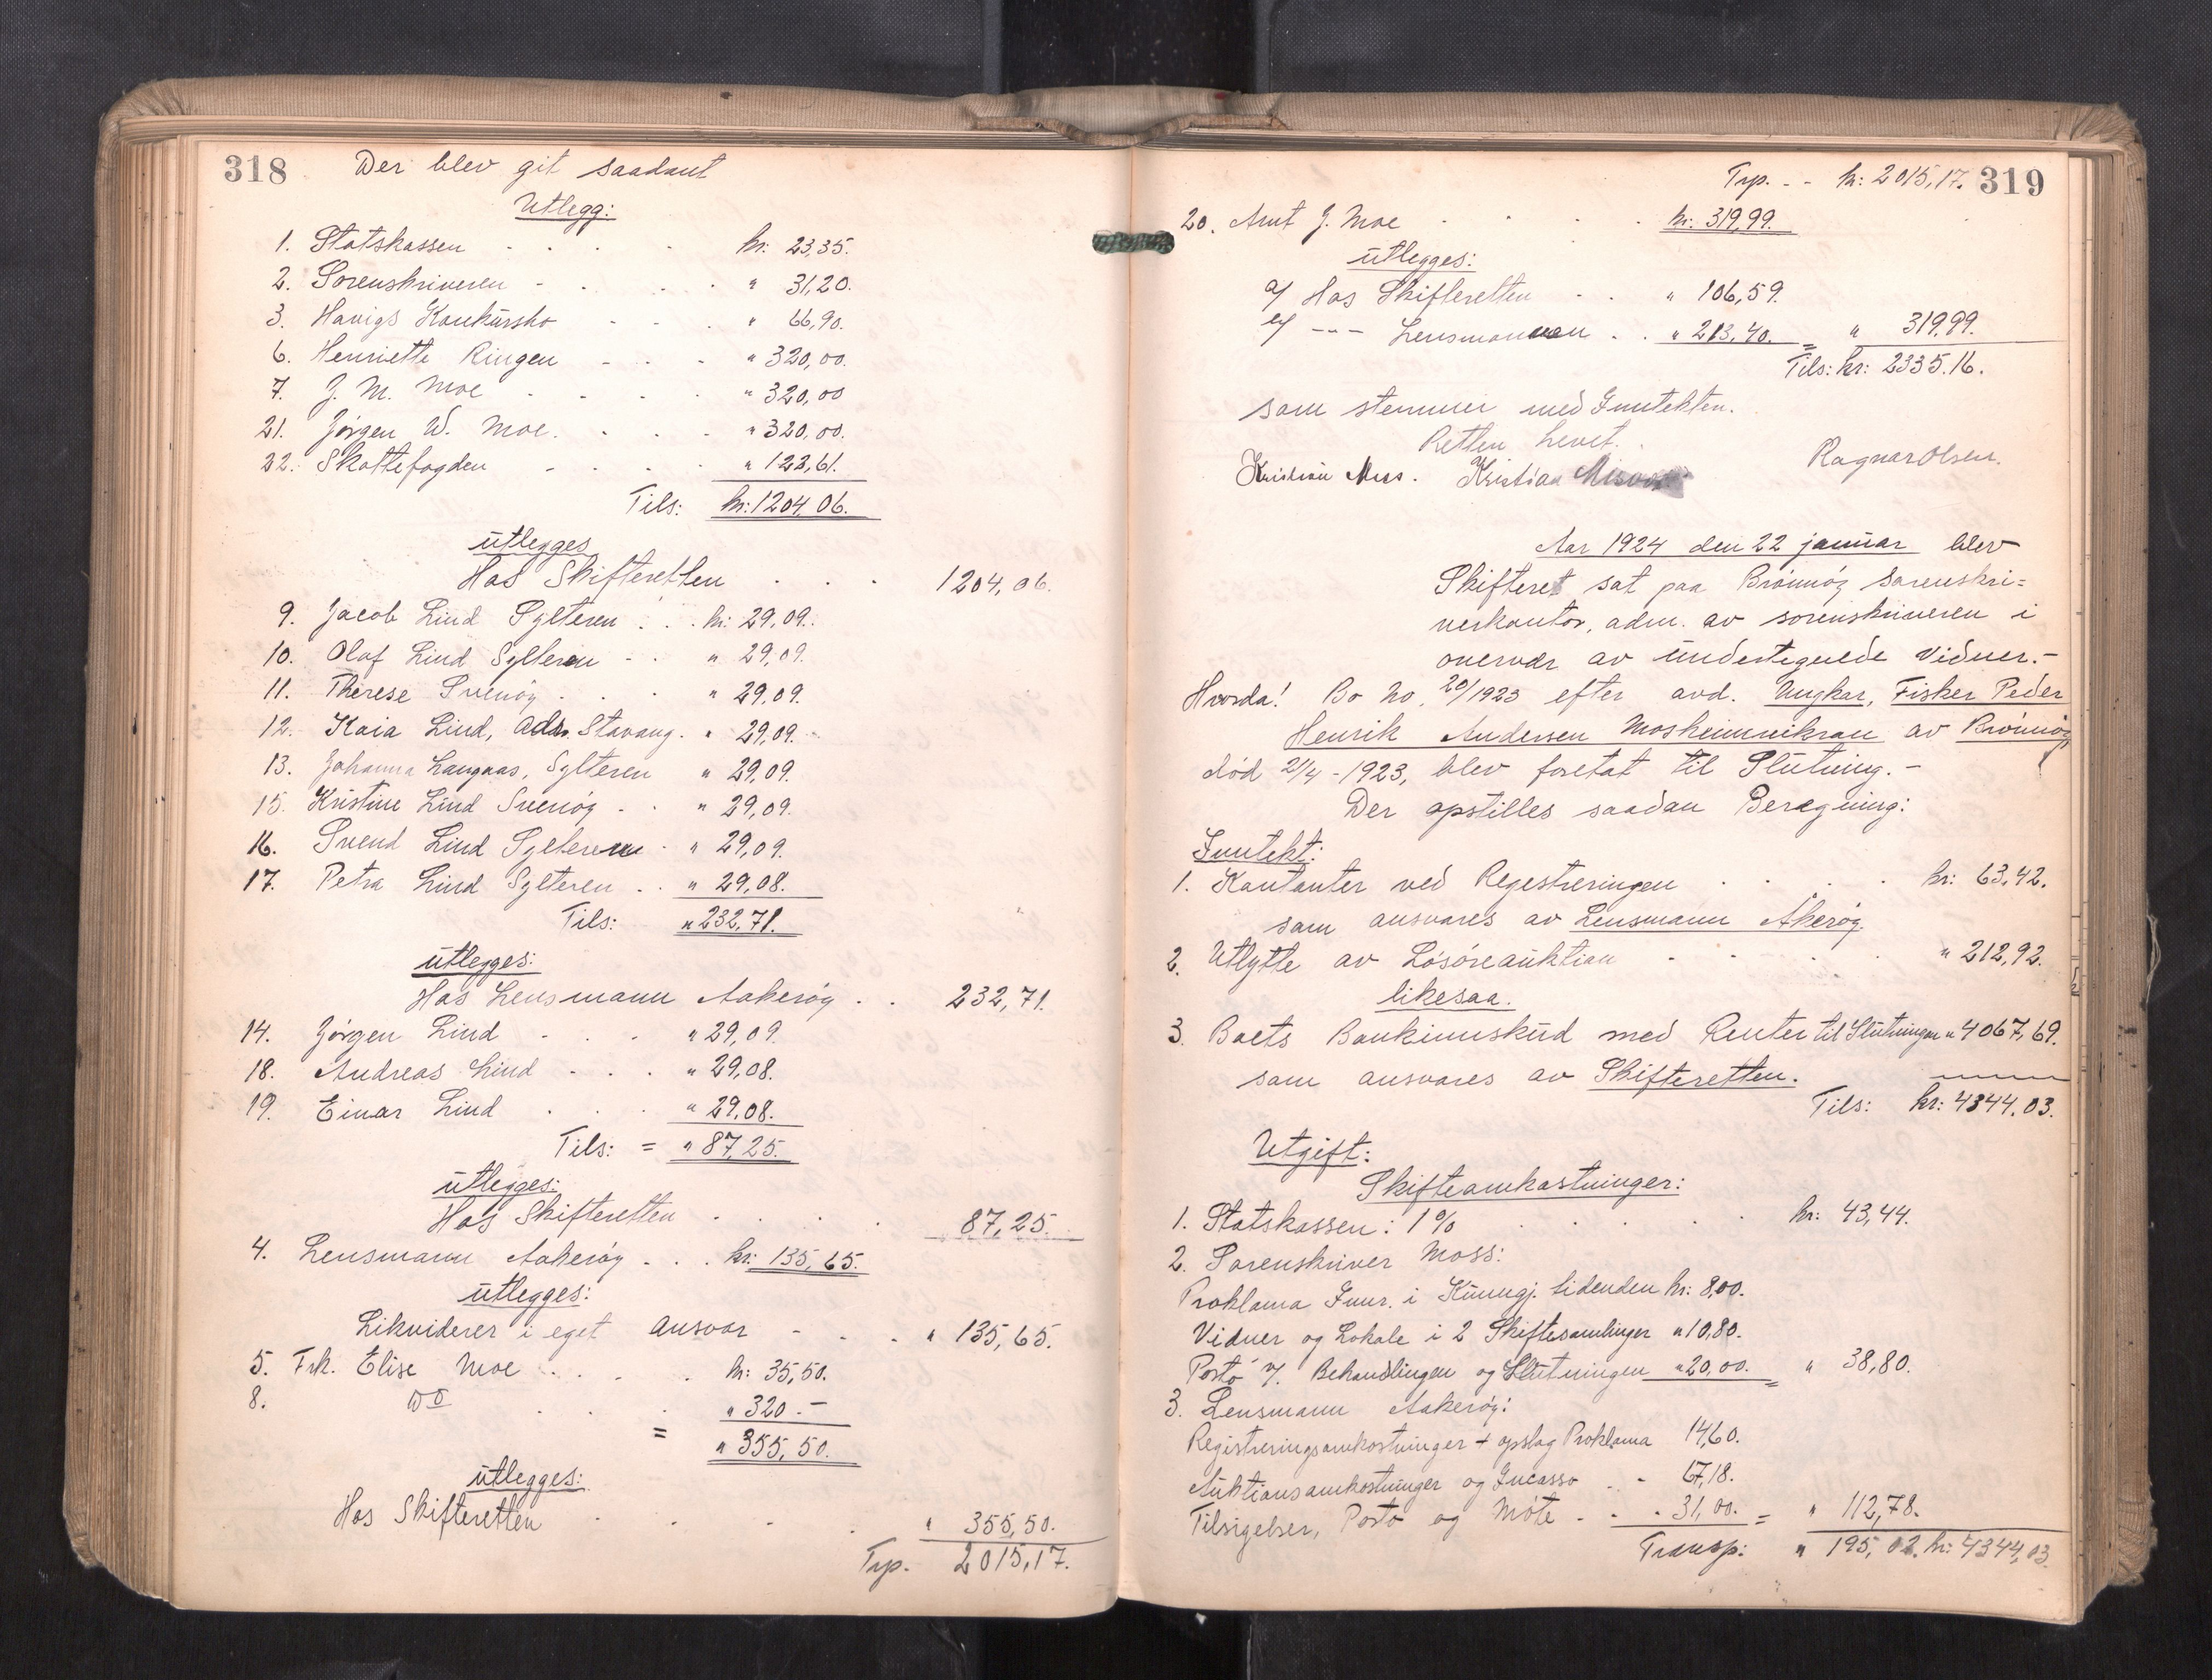 318 Der blev git saadant
Utlegg:
1. Statskassen kr: 23,35.
2. Sorenskriveren " 31,20.
3. Havigs Konkursbo " 66,90.
6. Henriette Ringen " 320,00.
7. J. M. Moe " 320,00
21. Jörgen W. Moe. " 320,00.
22. Skattefogden " 122,61.
Tils: kr: 1204,06.
utlegges
Hos Skifteretten 1204,06.
9. Jacob Lind Sylteren kr: 29,09.
10. Olaf Lind Sylteren " 29,09.
11. Therese Svenöy " 29,09.
12. Kaia Lind, Adr. Stavang. " 29,09.
13. Johanna Langaas, Sylteren " 29,09.
15. Kristine Lind Svenöy " 29,09.
16. Svend Lind Sylteren " 29,09.
17. Petra Lind Sylteren " 29,08.
Tils: " 232,71.
utlegges:
Hos Lensmann Aakeröy 232,71.
14. Jörgen Lind " 29,09.
18. Andreas Lind " 29,08.
19. Einar Lind " 29,08.
Tils: = " 87,25.
utlegges:
Hos Skifteretten 87,25.
4. Lensmann Aakeröy kr: 135,65.
utlegges:
Likviderer i eget ansvar " 135,65.
5. Frk. Elise Moe kr: 35,50.
8. Do " 320.-
= " 355,50.
utlegges:
Hos Skifteretten " 355,50.
Trp. 2015,17.
Trp. - - kr: 2015,17. 319
20. Arnt J. Moe kr: 319,99.
utlegges:
a/ Hos Skifteretten " 106,59.
b/ --- Lensmannen " 213,40. = " 319,99.
Tils: kr: 2335.16.
som stemmer med Inntekten.
Retten hevet.
Kristian Kristian Ragnar Olsen.
Aar 1924 den 22 januar blev
Skifteret sat paa Brönnöy sorenskri=
verkontor, adm. av sorenskriveren i
overvær av undertegnede Vidner.-
Hvorda! Bo No. 20/1923 efter avd. Ungkar, Fisker Peder
Henrik Andersen Mosheimvikran av Brönnöy
död 2/4-1923, blev foretat til Slutning.-
Der opstilles saadan Beregning:
Inntekt:
1. Kontanter ved Registreringen kr: 63,42.
som ansvares av Lensmann Åkeröy.
2. Utbytte av Lösöreauktion " 212,92.
likesaa.
3. Boets Bankinnskud med Renter til Slutningen " 4067,69.
som ansvares av Skifteretten.
Tils: kr: 4344,03.
Utgift:
Skifteomkostninger:
1. Statskassen: 1% kr: 43,44.
2. Sorenskriver Moss:
Proklama Innr. i Kunngj. tidenden kr: 8,00.
Vidner og Lokale i 2 Skiftesamlinger " 10,80.
Porto v/. Behandlingen og Slutningen " 20,00. = " 38,80.
3. Lensmann Aakeröy:
Registreringsomkostninger + opslag Proklama 14,60.
Auktionsomkostninger og Incasso - 67,18.
Tilsigelser, Porto og Möte - 31,00. = " 112,78.
Transp: " 195,02. kr: 4344,03.